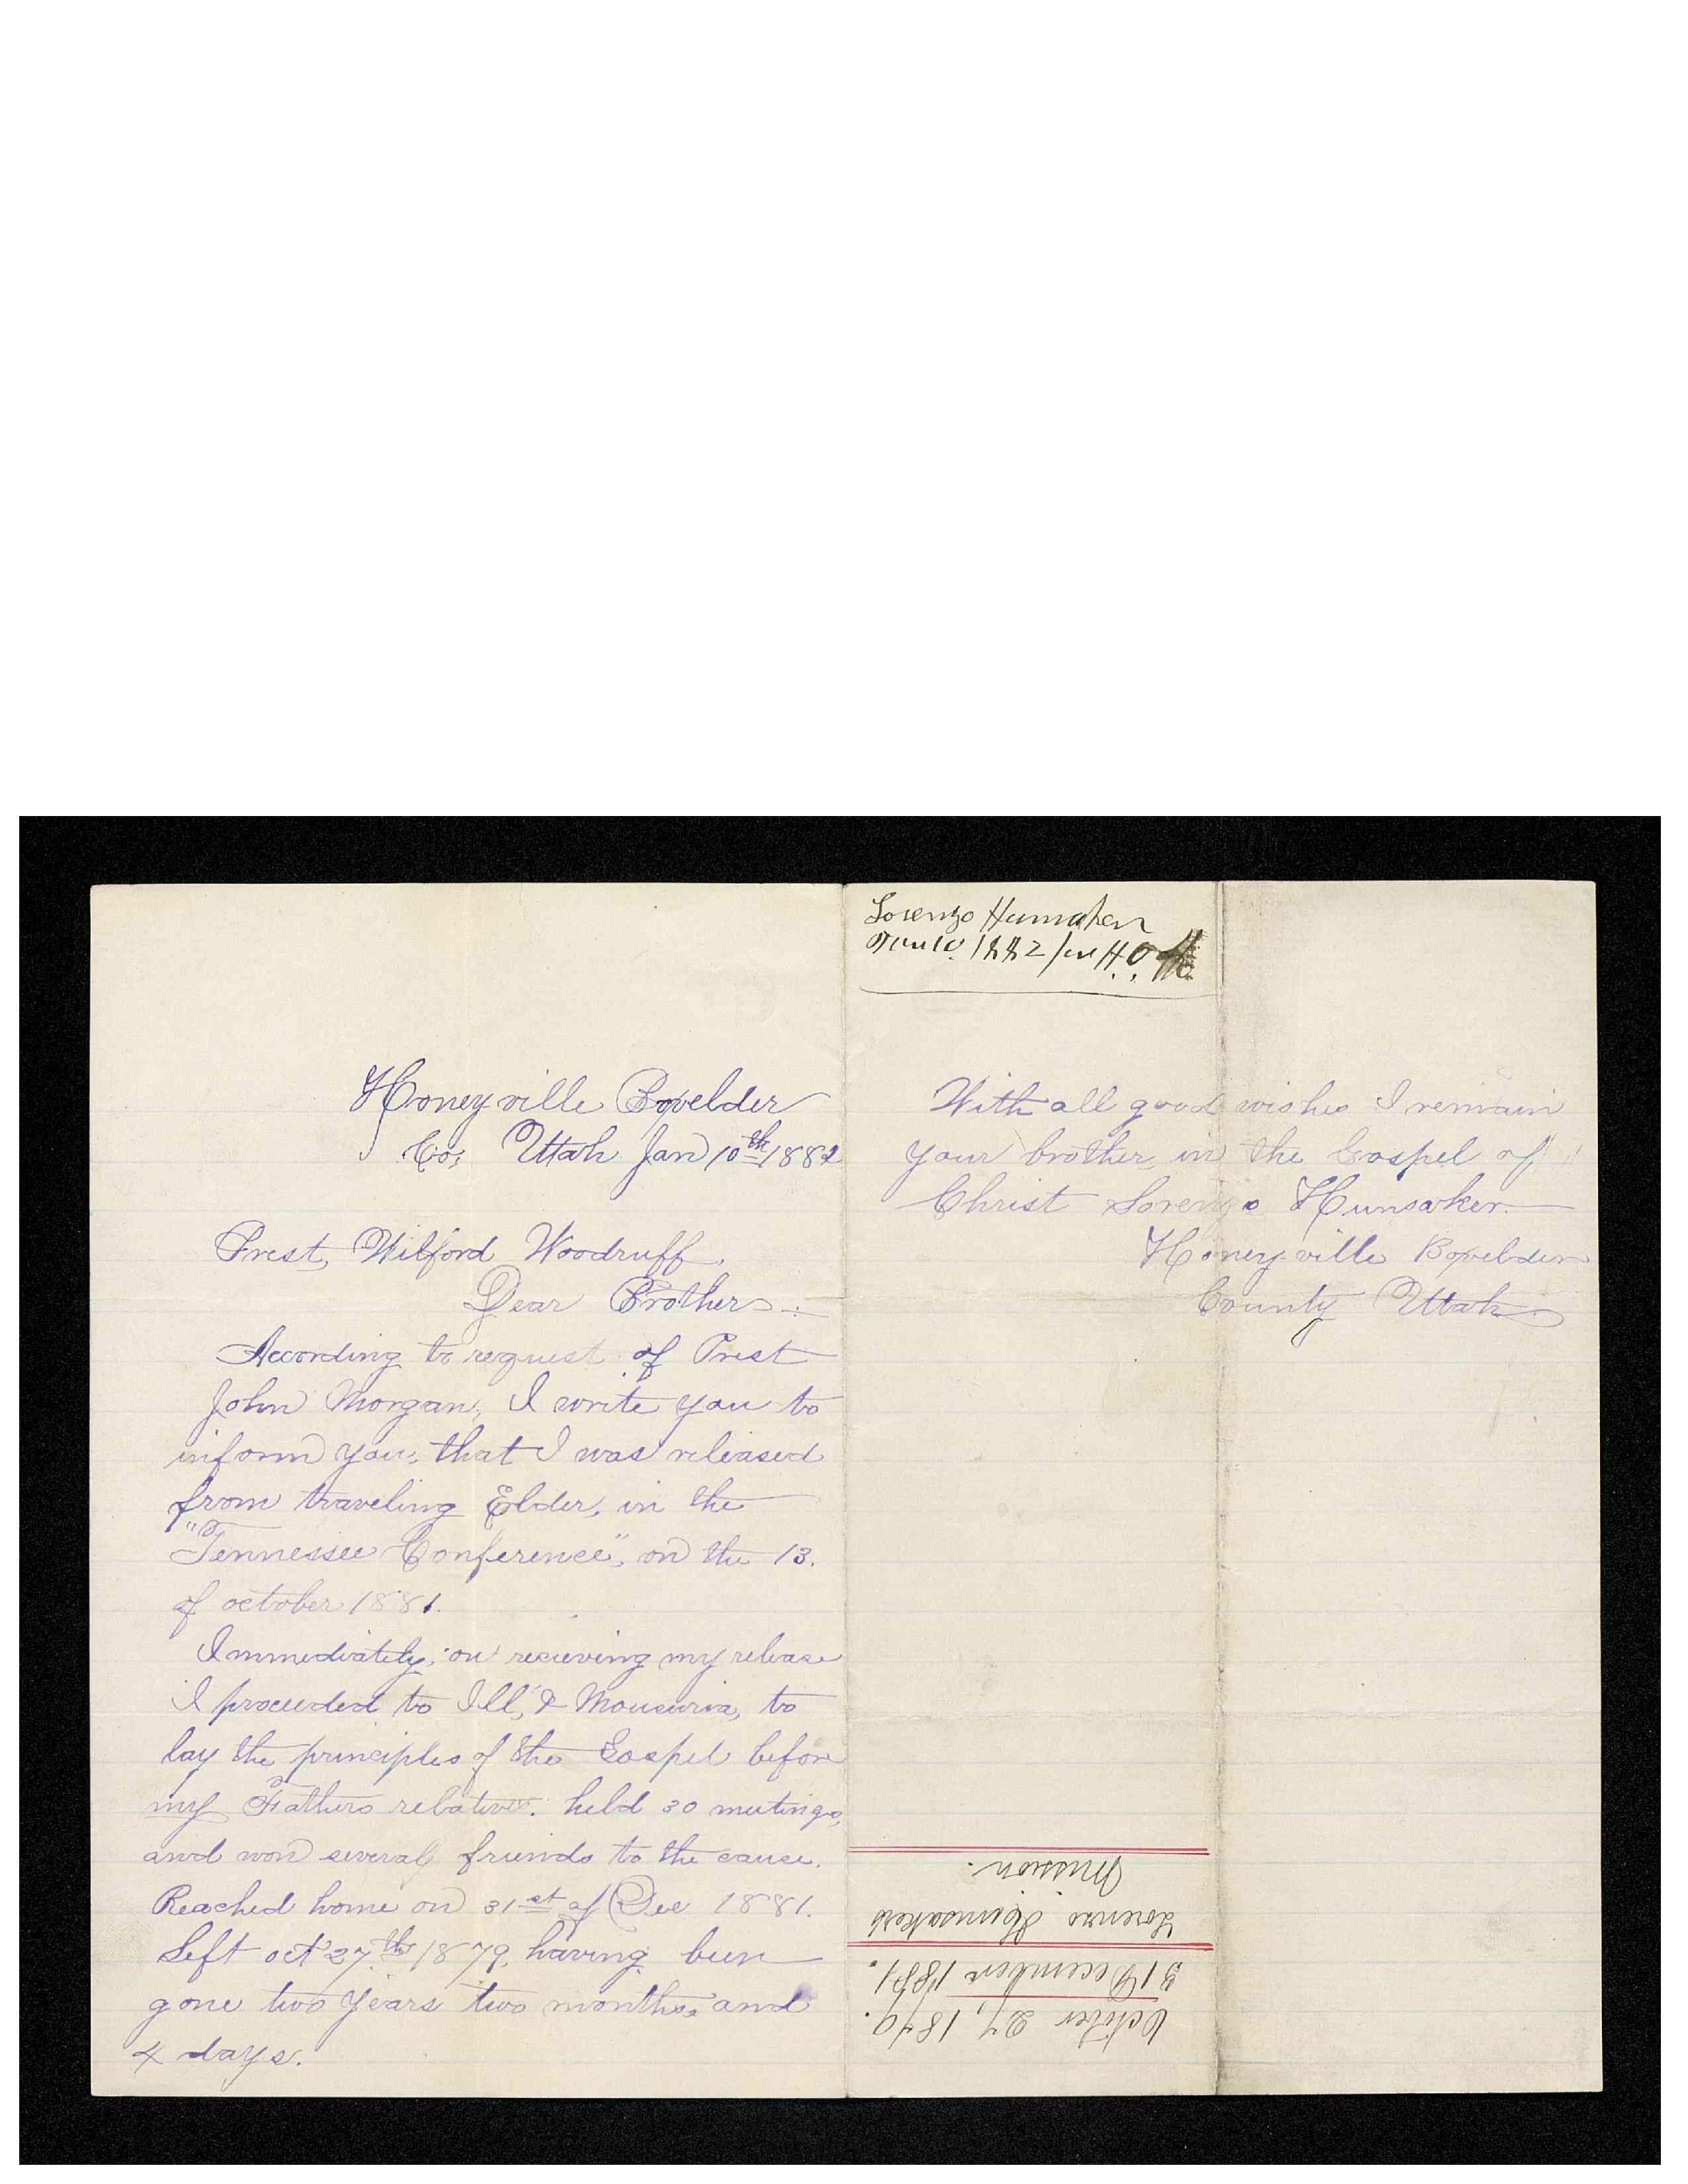 Honeyville Boxelder
Co; Utah Jan 10th 1882
Prest, Wilford Woodruff.
Dear Brother :
According to request of Prest
John Morgan, I write you to
inform you; that I was released
from traveling Elder, in the
"Tennessee Conference", on the 13.
of october 1881.
Immediately, on recieving my release
I proceeded to Ill, & to
lay the principles of the Gospel before
my Fathers relatives. held 30 meetings,
and won several friends to the cause.
Reached home on 31st of Dec 1881.
Left oct 27th 1879, having been
gone two years two months and
4 days.
Lorenzo Hunsaker
10. 1882
With all good wishes I remain
your brother in the Gospel of
Christ Lorenzo Hunsaker.
Honeyville Boxelder
County Utah
October 27, 1879.
31 December 1881.
Lorenzo Hunsakers
Mission.